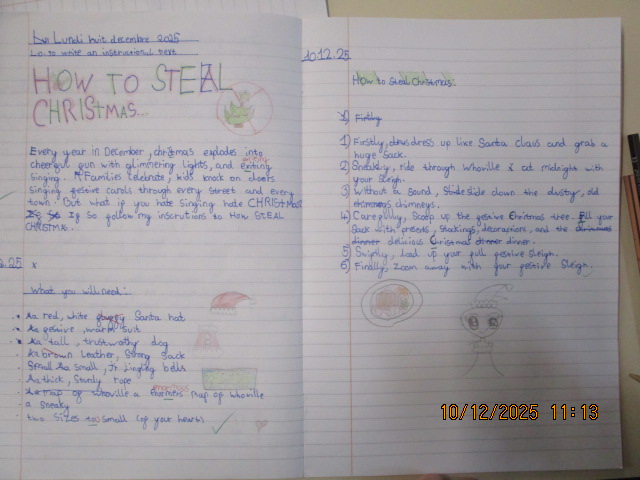 Lundi huit decembre 2025
L.o. to write an instructional text
HOW TO STEAL
CHRISTMAS...
Every year in December, christmas explodes into
cheerful fun with glimmering lights, and exiting
singing. Families celebrate, kids knock on doors
singing festive carols through every street and every
town. But what if you hate singing hate CHRISTMAS
If so follow my instrutions to HOW STEAL
CHRISTMAS.
What you will need:
a red, white fluffy Santa hat
a festive, warm suit
a tall, trustworthy dog
a brown leather, strong sack
small, Jingling bells
a thick, Sturdy rope
enormous
map of whoville
a sneaky
two sizes to small (of your heart)
10.12.25
How to steal Christmas:
Firstly
1) Firstly, dress up like Santa claus and grab a
huge Sack.
2) Sneakily, ride through Whoville at midnight with
your sleigh.
3) Without a sound, Slide down the dusty, old
chimneys.
4) Carefully, Scoop up the festive Christmas tree. Fill your
Sack with presents, Stockings, decorations, and the
delicious Christmas dinner.
5) Swiftly, load up your full festive sleigh.
6) Finally, Zoom away with your festive Sleigh.
10/12/2025 11:13